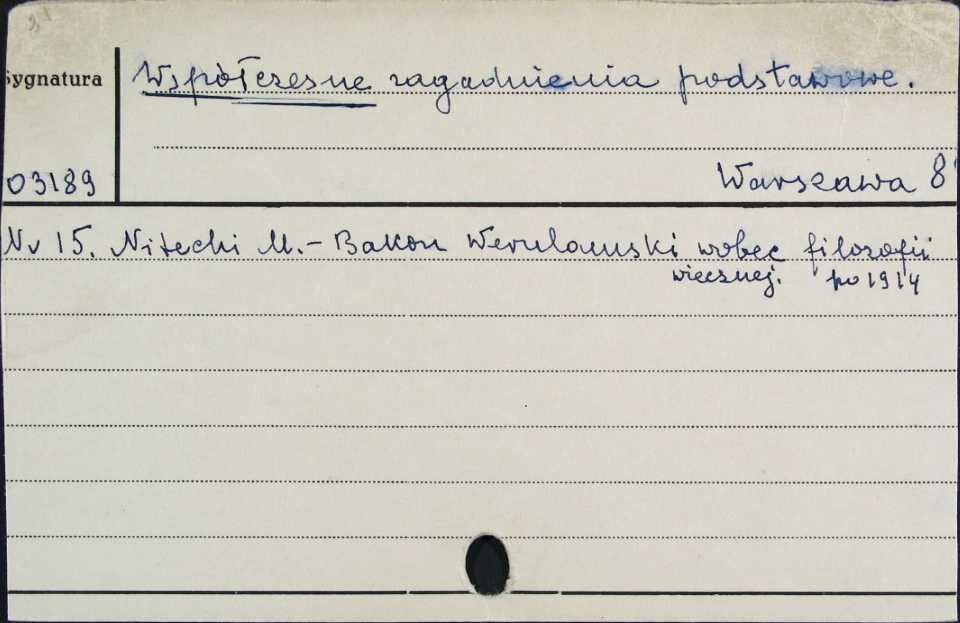 Sygnatura
Współczesne zagadnienia podstawowe.
03189
Warszawa 8°
Nr 15. Nitecki M. - Bakon Werulamski wobec filozofii
wiecznej. po 1914